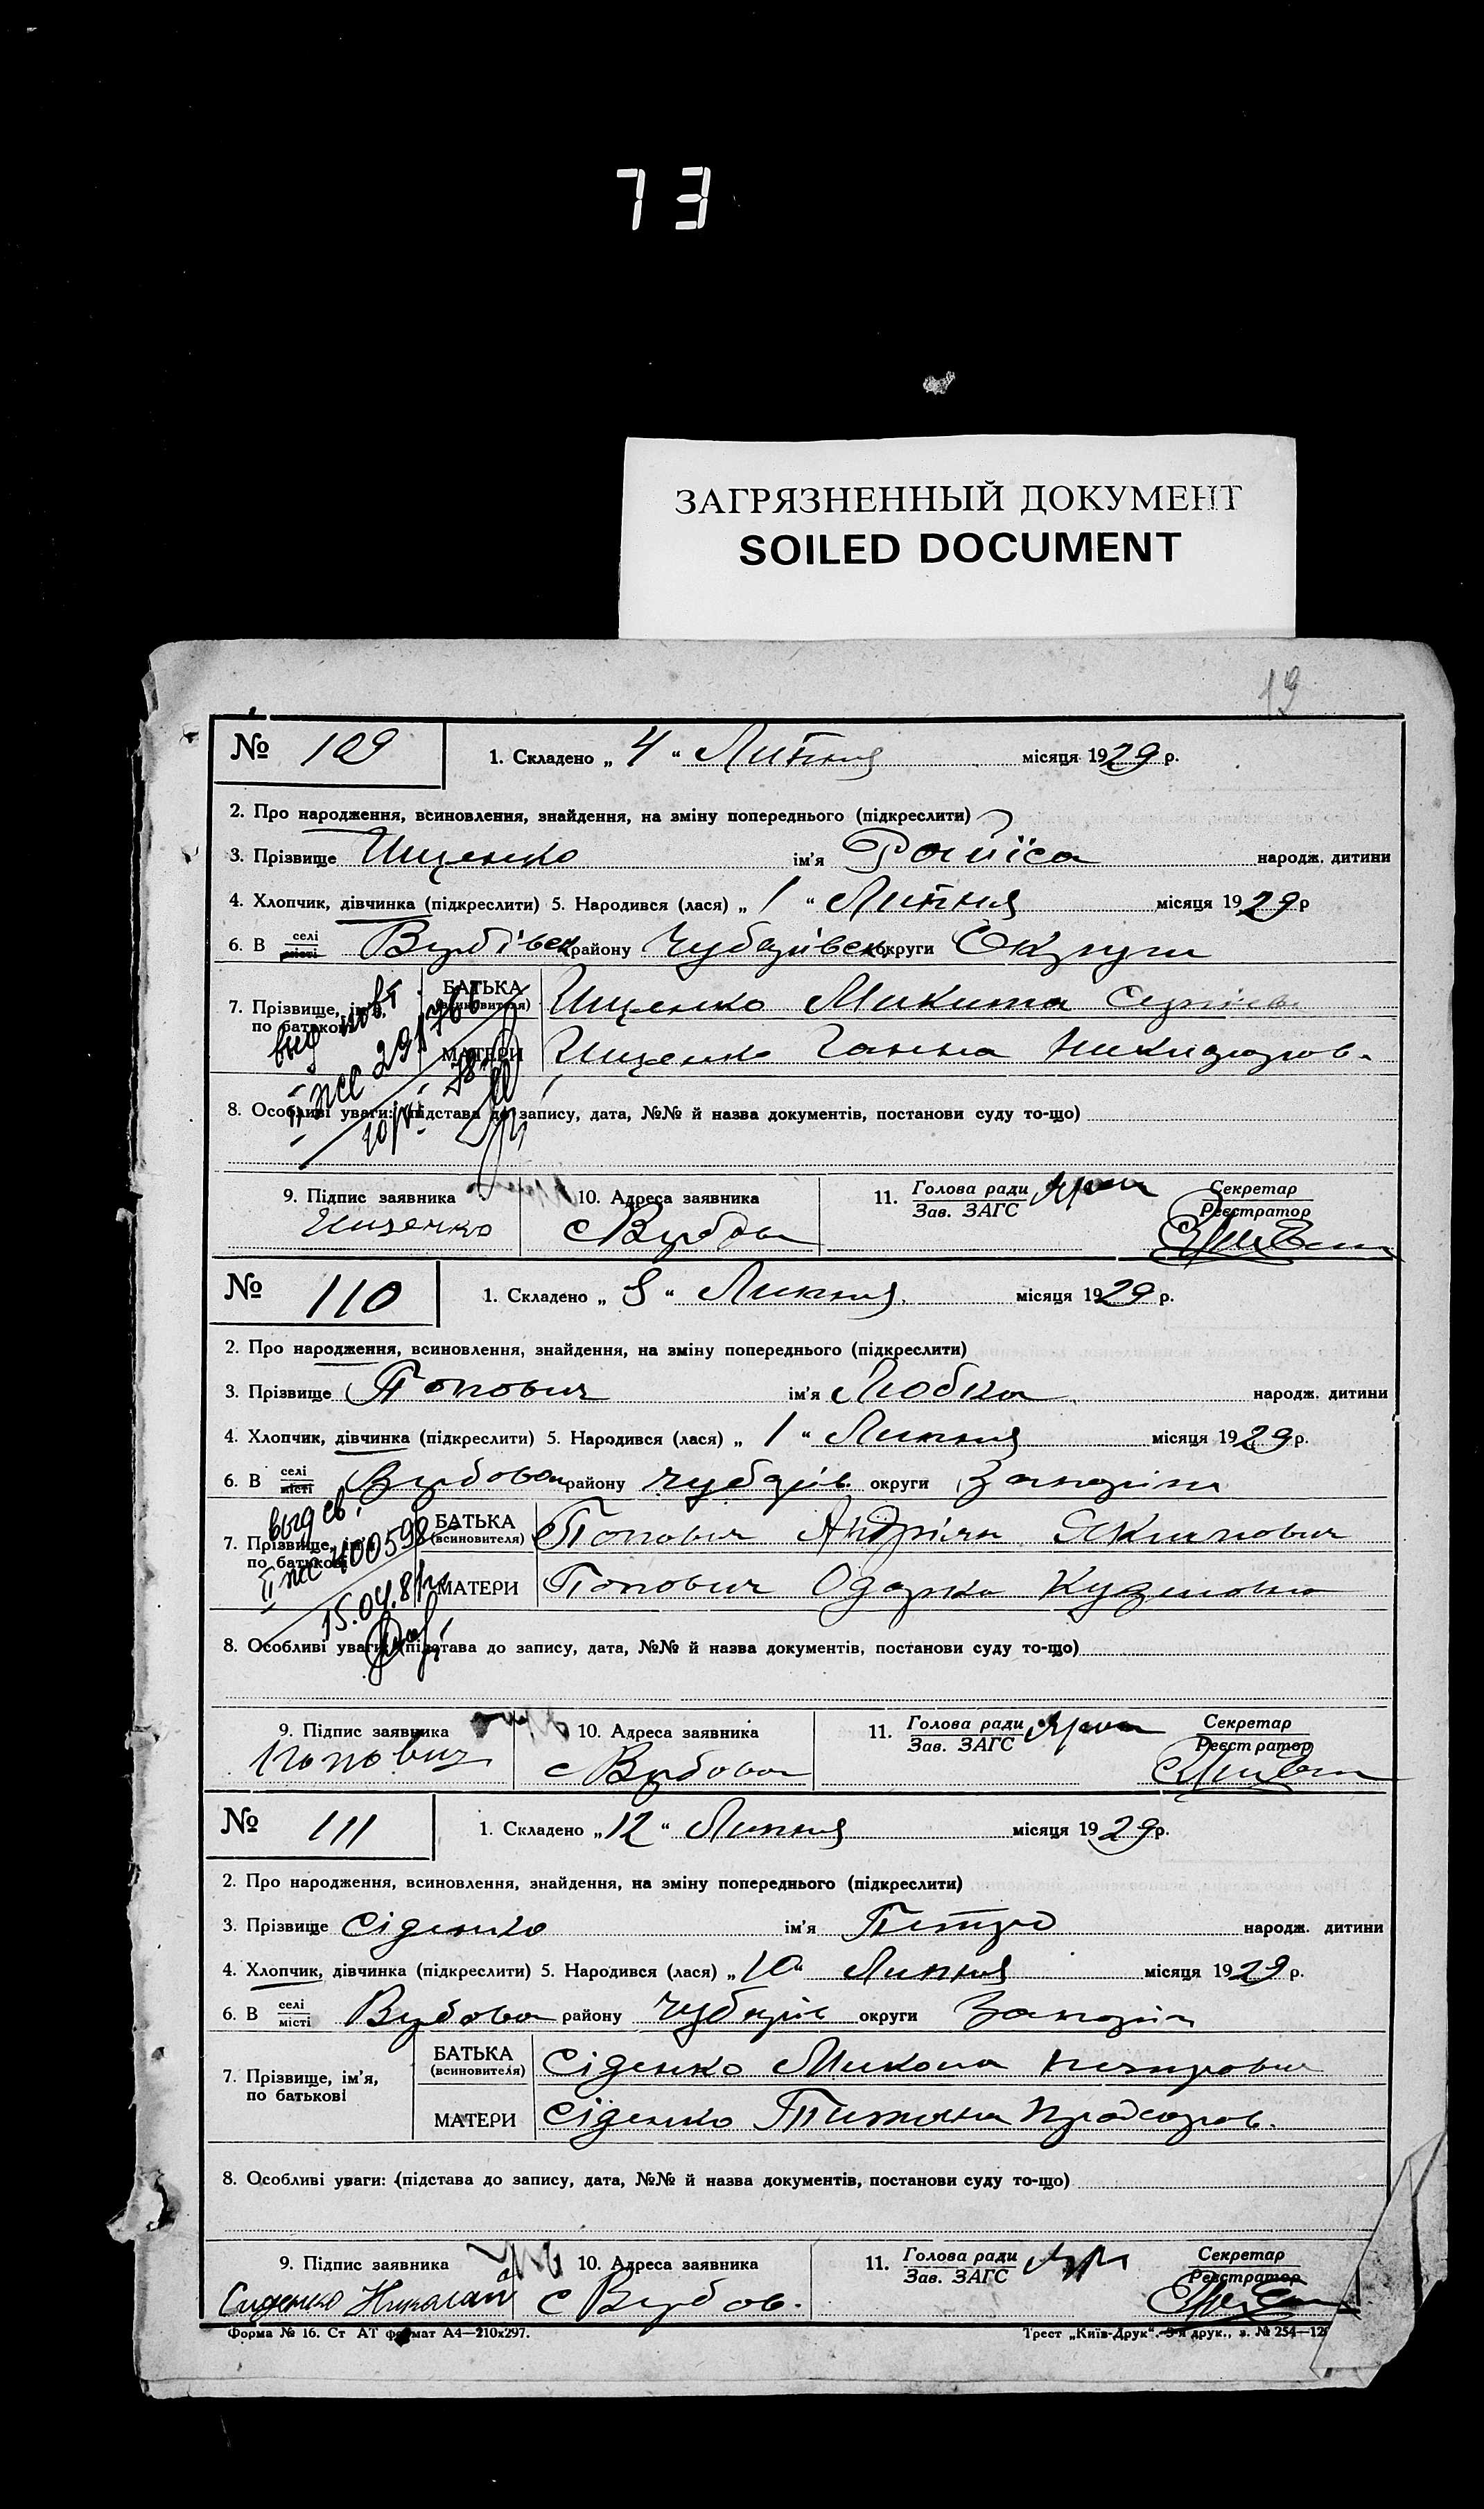 73
ЗАГРЯЗНЕННЫЙ ДОКУМЕНТ
SOILED DOCUMENT
19
№ 109 1. Складено „ 4 “ Липня місяця 1929 р.
2. Про народження, всиновлення, знайдення, на зміну попереднього (підкреслити)
3. Прізвище Ищенко ім'я Раиїса народж. дитини
4. Хлопчик, дівчинка (підкреслити) 5. Народився (лася) „ 1 “ Липня місяця 1929 р
6. В селі місті району округи Округи
7. Прізвище, ім'я, по батькові БАТЬКА (всиновителя) Ищенко Микита
МАТЕРИ Ищенко Ганна
8. Особливі уваги: (підстава до запису, дата, №№ й назва документів, постанови суду то-що)
9. Підпис заявника 10. Адреса заявника 11. Голова ради Зав. ЗАГС Секретар Реєстратор
Ищенко с
№ 110 1. Складено „ 8 “ Липня місяця 1929 р.
2. Про народження, всиновлення, знайдення, на зміну попереднього (підкреслити)
3. Прізвище Попович ім'я Любка народж. дитини
4. Хлопчик, дівчинка (підкреслити) 5. Народився (лася) „ 1 “ Липня місяця 1929 р.
6. В селі місті Вербова району Чубарів. округи
выд св.
II жс 400598
15.04.81
7. Прізвище, ім'я, по батькові БАТЬКА (всиновителя) Попович Андріян Якимович
МАТЕРИ Попович Одарка Кузмовна
8. Особливі уваги: (підстава до запису, дата, №№ й назва документів, постанови суду то-що)
9. Підпис заявника 10. Адреса заявника 11. Голова ради Зав. ЗАГС Секретар Реєстратор
Попович с Вербова
№ 111 1. Складено „ 12 “ Липня місяця 1929 р.
2. Про народження, всиновлення, знайдення, на зміну попереднього (підкреслити)
3. Прізвище Сіденко ім'я Петро народж. дитини
4. Хлопчик, дівчинка (підкреслити) 5. Народився (лася) „ 10 “ Липня місяця 1929 р.
6. В селі місті Вербова району Чубарів округи
7. Прізвище, ім'я, по батькові БАТЬКА (всиновителя) Сіденко Микола Петрович
МАТЕРИ Сіденко
8. Особливі уваги: (підстава до запису, дата, №№ й назва документів, постанови суду то-що)
9. Підпис заявника 10. Адреса заявника 11. Голова ради Зав. ЗАГС Секретар Реєстратор
Сиденко Николай с Вербов.
Форма № 16. Ст АТ формат А4—210х297. Трест „Київ-Друк“.